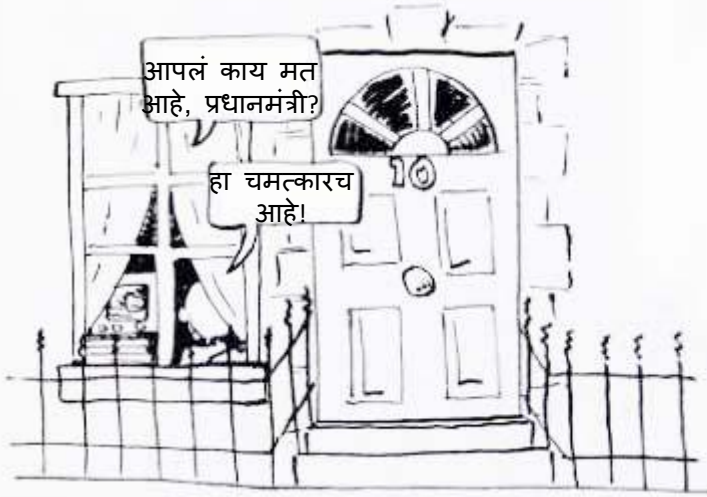 आपलं काय मत
आहे, प्रधानमंत्री?
हा चमत्कारच
आहे!
10